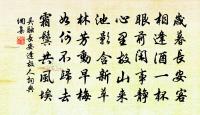 歲暮長安客
相逢酒一杯
眼前閒事靜
心里故山來
池影含新草
林芳動早梅
如何不歸去
霜鬢共風埃
吳融長安逢故人詞典
網集